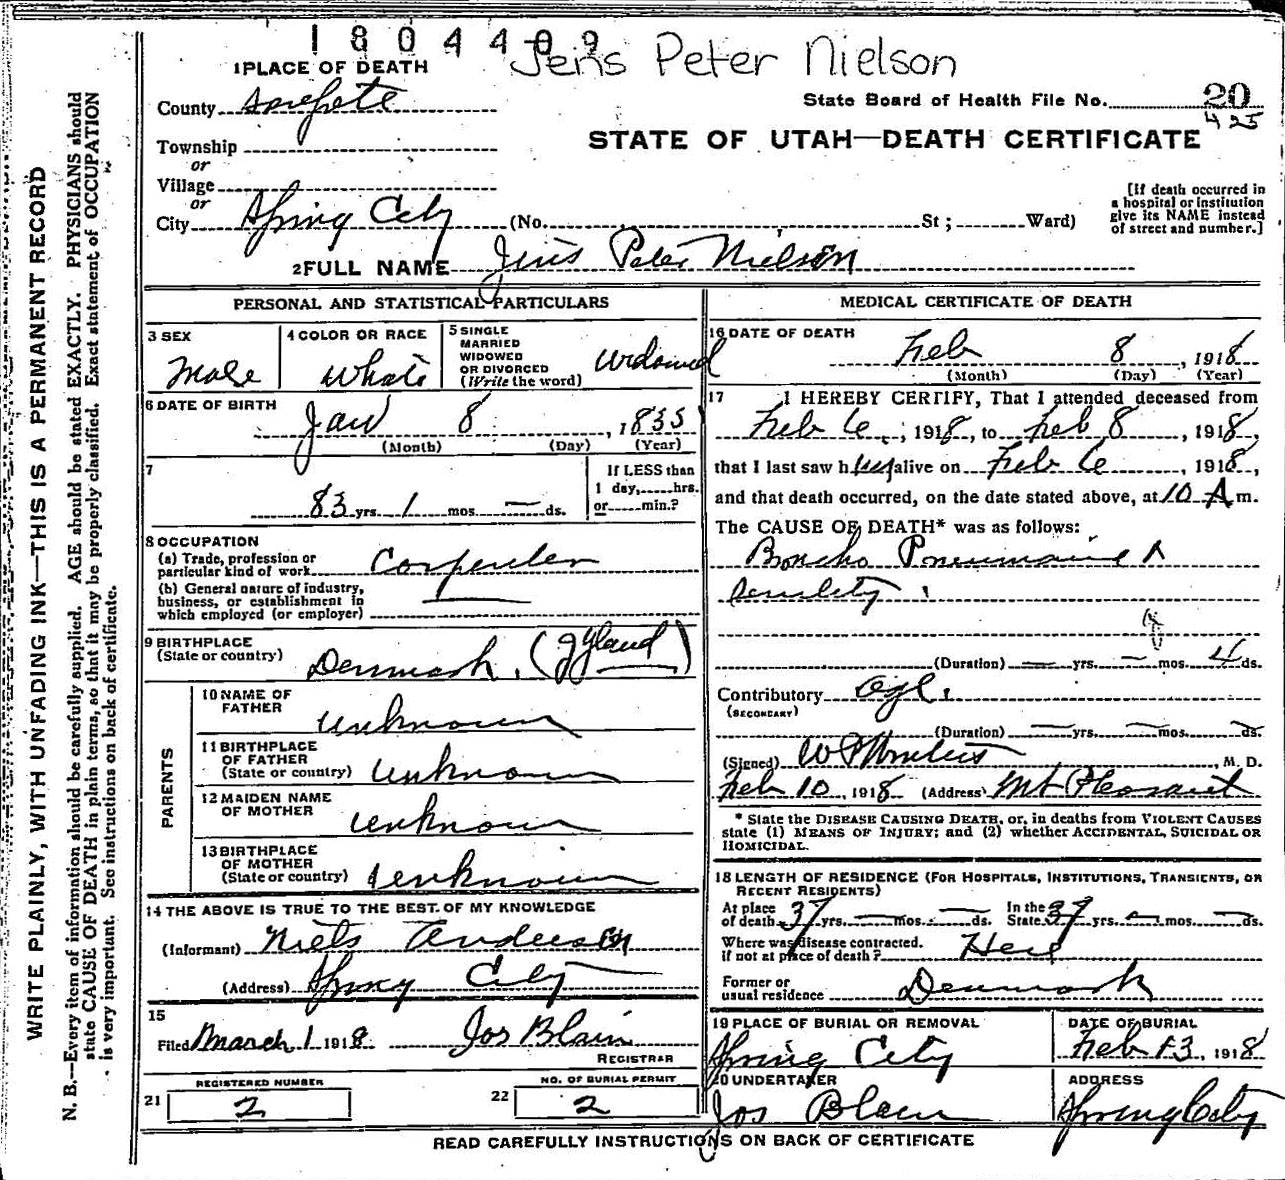 1804409
Jens Peter Nielson
1 PLACE OF DEATH
County Sanpete
State Board of Health File No. 20
425
Township
or
Village
or
City Spring City (No. St ; Ward)
STATE OF UTAH—DEATH CERTIFICATE
[If death occurred in
a hospital or institution
give its NAME instead
of street and number.]
2 FULL NAME Jens Peter Nielson
PERSONAL AND STATISTICAL PARTICULARS
3 SEX
Male
4 COLOR OR RACE
White
5 SINGLE
MARRIED
WIDOWED
OR DIVORCED
(Write the word)
Widowed
6 DATE OF BIRTH
Jan 8, 1835
(Month) (Day) (Year)
7
83 yrs. 1 mos — ds.
If LESS than
1 day, hrs.
or min.?
8 OCCUPATION
(a) Trade, profession or
particular kind of work Carpenter
(b) General nature of industry,
business, or establishment in
which employed (or employer)
9 BIRTHPLACE
(State or country) Denmark. (Jyland)
PARENTS
10 NAME OF
FATHER unknown
11 BIRTHPLACE
OF FATHER
(State or country) unknown
12 MAIDEN NAME
OF MOTHER unknown
13 BIRTHPLACE
OF MOTHER
(State or country) unknown
14 THE ABOVE IS TRUE TO THE BEST OF MY KNOWLEDGE
(Informant) Niels
(Address) Spring City
15
Filed March 1 1918 Jos Blain
REGISTRAR
REGISTERED NUMBER
21 2
NO. OF BURIAL PERMIT
22 2
MEDICAL CERTIFICATE OF DEATH
16 DATE OF DEATH
Feb 8, 1918
(Month) (Day) (Year)
17 I HEREBY CERTIFY, That I attended deceased from
Feb 6, 1918, to Feb 8, 1918,
that I last saw him alive on Feb 6, 1918,
and that death occurred, on the date stated above, at 10 A m.
The CAUSE OF DEATH* was as follows:
Boncho Pneumonia
senility
(Duration) — yrs. — mos. 4 ds.
Contributory age.
(SECONDARY)
(Duration) — yrs. — mos. — ds.
(Signed) , M. D.
Feb 10, 1918 (Address) Mt Pleasant
* State the DISEASE CAUSING DEATH, or, in deaths from VIOLENT CAUSES
state (1) MEANS OF INJURY; and (2) whether ACCIDENTAL, SUICIDAL OR
HOMICIDAL.
18 LENGTH OF RESIDENCE (FOR HOSPITALS, INSTITUTIONS, TRANSIENTS, OR
RECENT RESIDENTS)
At place
of death 37 yrs. — mos. — ds.
In the
State 37 yrs. — mos. — ds.
Where was disease contracted.
if not at place of death? Here
Former or
usual residence Denmark
19 PLACE OF BURIAL OR REMOVAL
Spring City
DATE OF BURIAL
Feb 13, 1918
20 UNDERTAKER
Jos Blain
ADDRESS
Spring City
READ CAREFULLY INSTRUCTIONS ON BACK OF CERTIFICATE
WRITE PLAINLY, WITH UNFADING INK—THIS IS A PERMANENT RECORD
N. B.—Every item of information should be carefully supplied. AGE should be stated EXACTLY. PHYSICIANS should
state CAUSE OF DEATH in plain terms, so that it may be properly classified. Exact statement of OCCUPATION
is very important. See instructions on back of certificate.